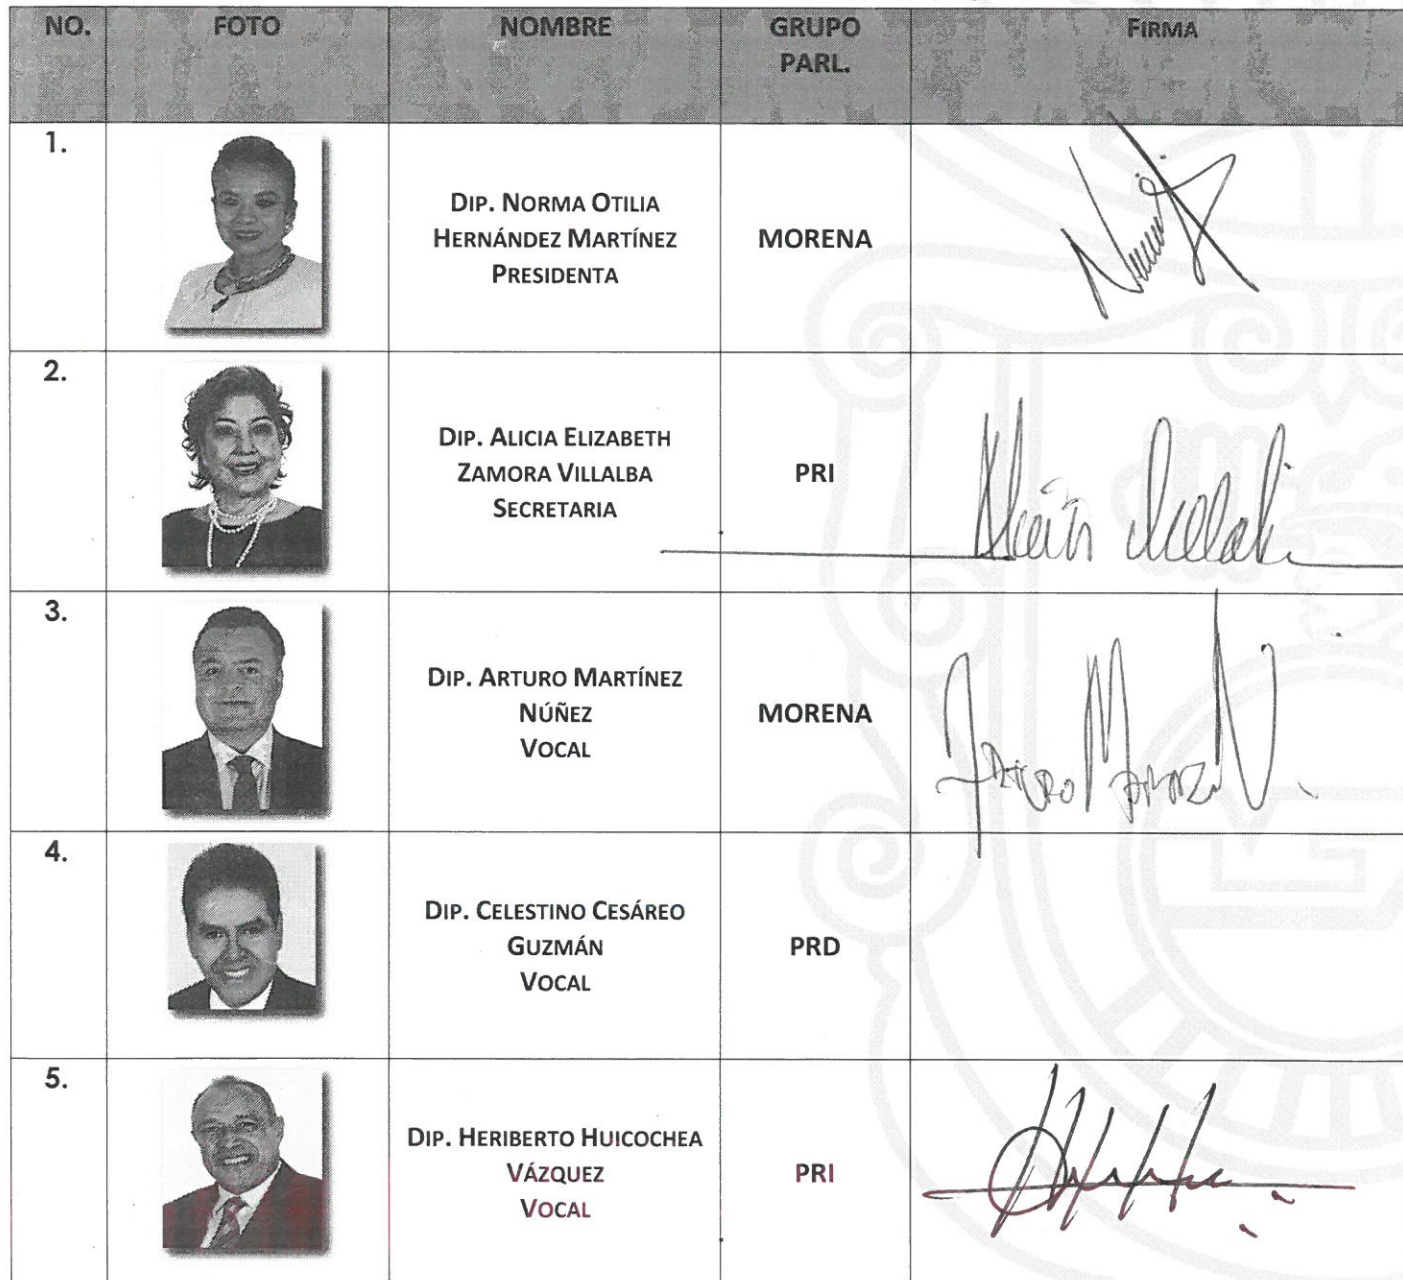 NO. FOTO NOMBRE GRUPO PARL. FIRMA
1.
DIP. NORMA OTILIA
HERNÁNDEZ MARTÍNEZ
PRESIDENTA
MORENA
2.
DIP. ALICIA ELIZABETH
ZAMORA VILLALBA
SECRETARIA
PRI
3.
DIP. ARTURO MARTÍNEZ
NÚÑEZ
VOCAL
MORENA
Arturo Martínez N
4.
DIP. CELESTINO CESÁREO
GUZMÁN
VOCAL
PRD
5.
DIP. HERIBERTO HUICOCHEA
VÁZQUEZ
VOCAL
PRI